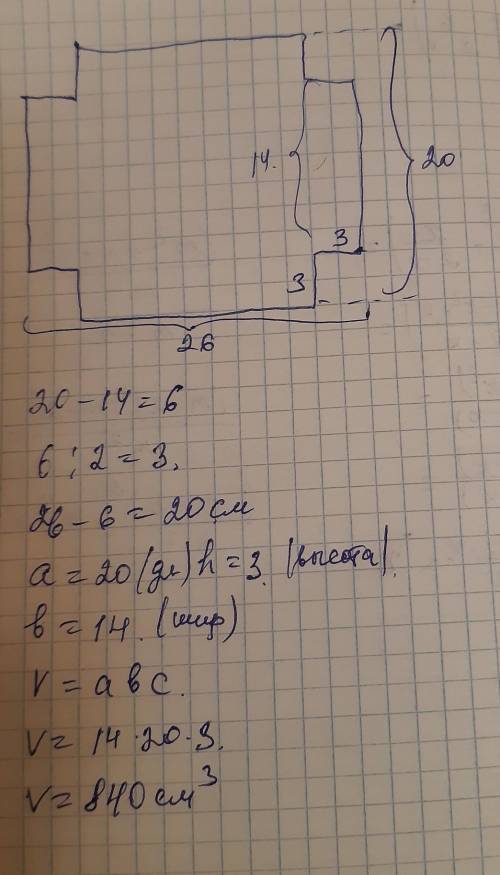 14.
20
3
3
26
20 - 14 = 6
6 : 2 = 3.
26 - 6 = 20 см
a = 20 (дл) h = 3. (высота).
в = 14. (шир)
V = a в c.
V = 14 · 20 · 3.
V = 840 см³